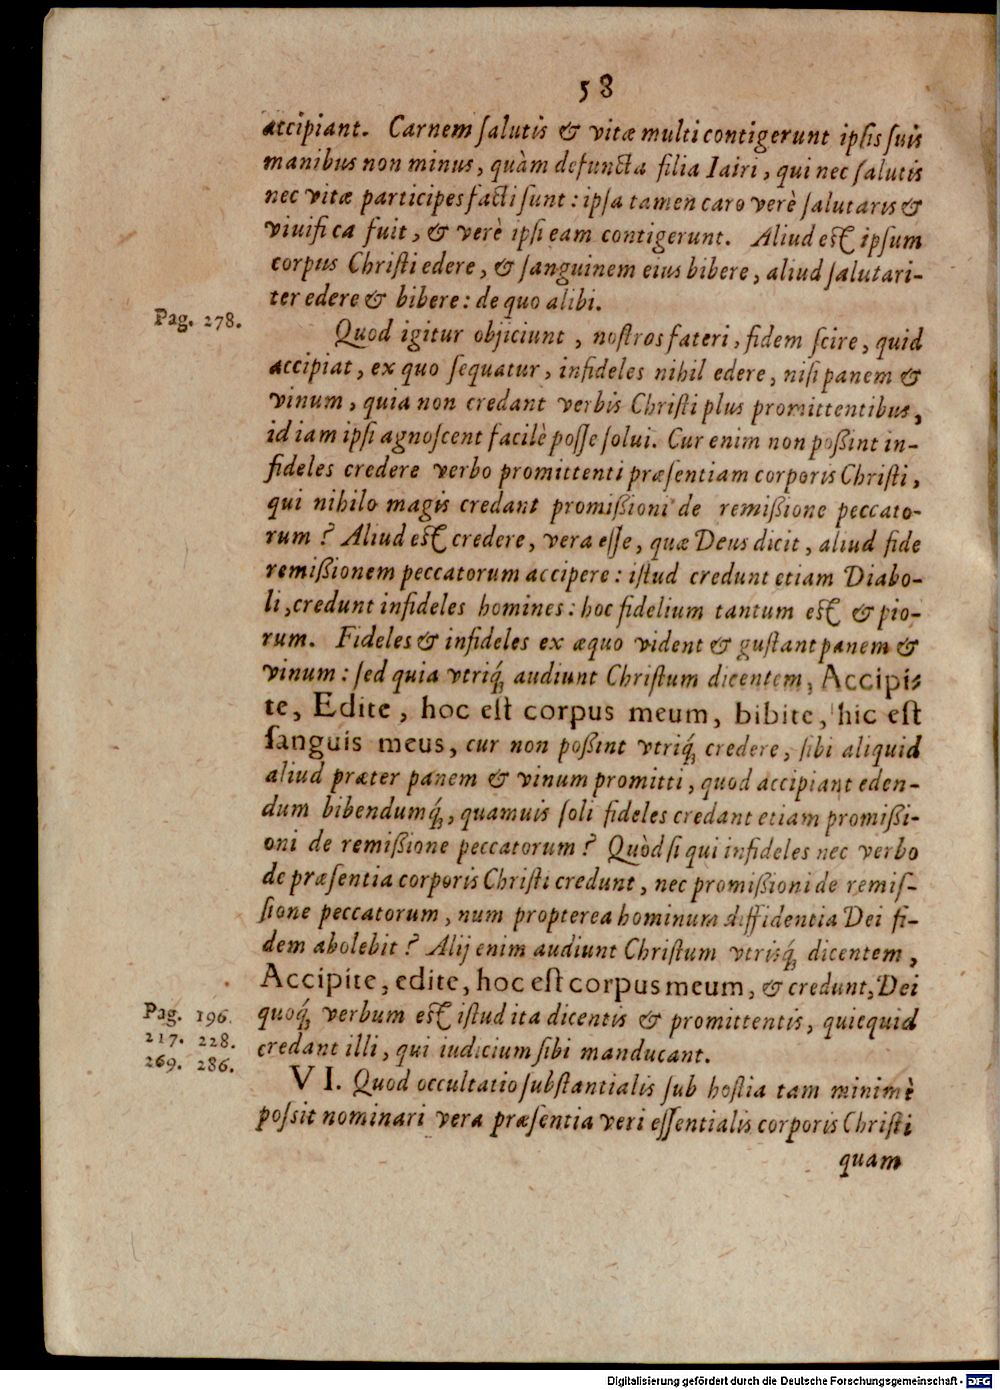 58
accipiant. Carnem ſalutis & vitæ multi contigerunt ipſis ſuis
manibus non minus, quàm defuncta filia Iairi, qui nec ſalutis
nec vitæ participes facti ſunt: ipſa tamen caro verè ſalutaris &
viuifica fuit, & verè ipſi eam contigerunt. Aliud eſt ipſum
corpus Chriſti edere, & ſanguinem eius bibere, aliud ſalutari-
ter edere & bibere: de quo alibi.
Pag. 278.
Quod igitur objiciunt, noſtros fateri, fidem ſcire, quid
accipiat, ex quo ſequatur, infideles nihil edere, niſi panem &
vinum, quia non credant verbis Chriſti plus promittentibus,
id iam ipſi agnoſcent facilè poſſe ſolui. Cur enim non poßint in-
fideles credere verbo promittenti præſentiam corporis Chriſti,
qui nihilo magis credant promißioni de remißione peccato-
rum? Aliud eſt credere, vera eſſe, quæ Deus dicit, aliud fide
remißionem peccatorum accipere: iſtud credunt etiam Diabo-
li, credunt infideles homines: hoc fidelium tantum eſt & pio-
rum. Fideles & infideles ex æquo vident & guſtant panem &
vinum: ſed quia vtriq́; audiunt Chriſtum dicentem, Accipi-
te, Edite, hoc eſt corpus meum, bibite, hic eſt
ſanguis meus, cur non poßint vtriq́; credere, ſibi aliquid
aliud præter panem & vinum promitti, quod accipiant eden-
dum bibendumq́;, quamuis ſoli fideles credant etiam promißi-
oni de remißione peccatorum? Quòd ſi qui infideles nec verbo
de præſentia corporis Chriſti credunt, nec promißioni de remiſ-
ſione peccatorum, num propterea hominum diffidentia Dei fi-
dem abolebit? Alij enim audiunt Chriſtum vtrisq́; dicentem,
Accipite, edite, hoc eſt corpus meum, & credunt, Dei
quoq́; verbum eſt iſtud ita dicentis & promittentis, quicquid
credant illi, qui iudicium ſibi manducant.
Pag. 196.
217. 228.
269. 286.
VI. Quod occultatio ſubſtantialis ſub hoſtia tam minimè
poſsit nominari vera præſentia veri eſſentialis corporis Chriſti
quam
Digitalisierung gefördert durch die Deutsche Forschungsgemeinschaft - DFG